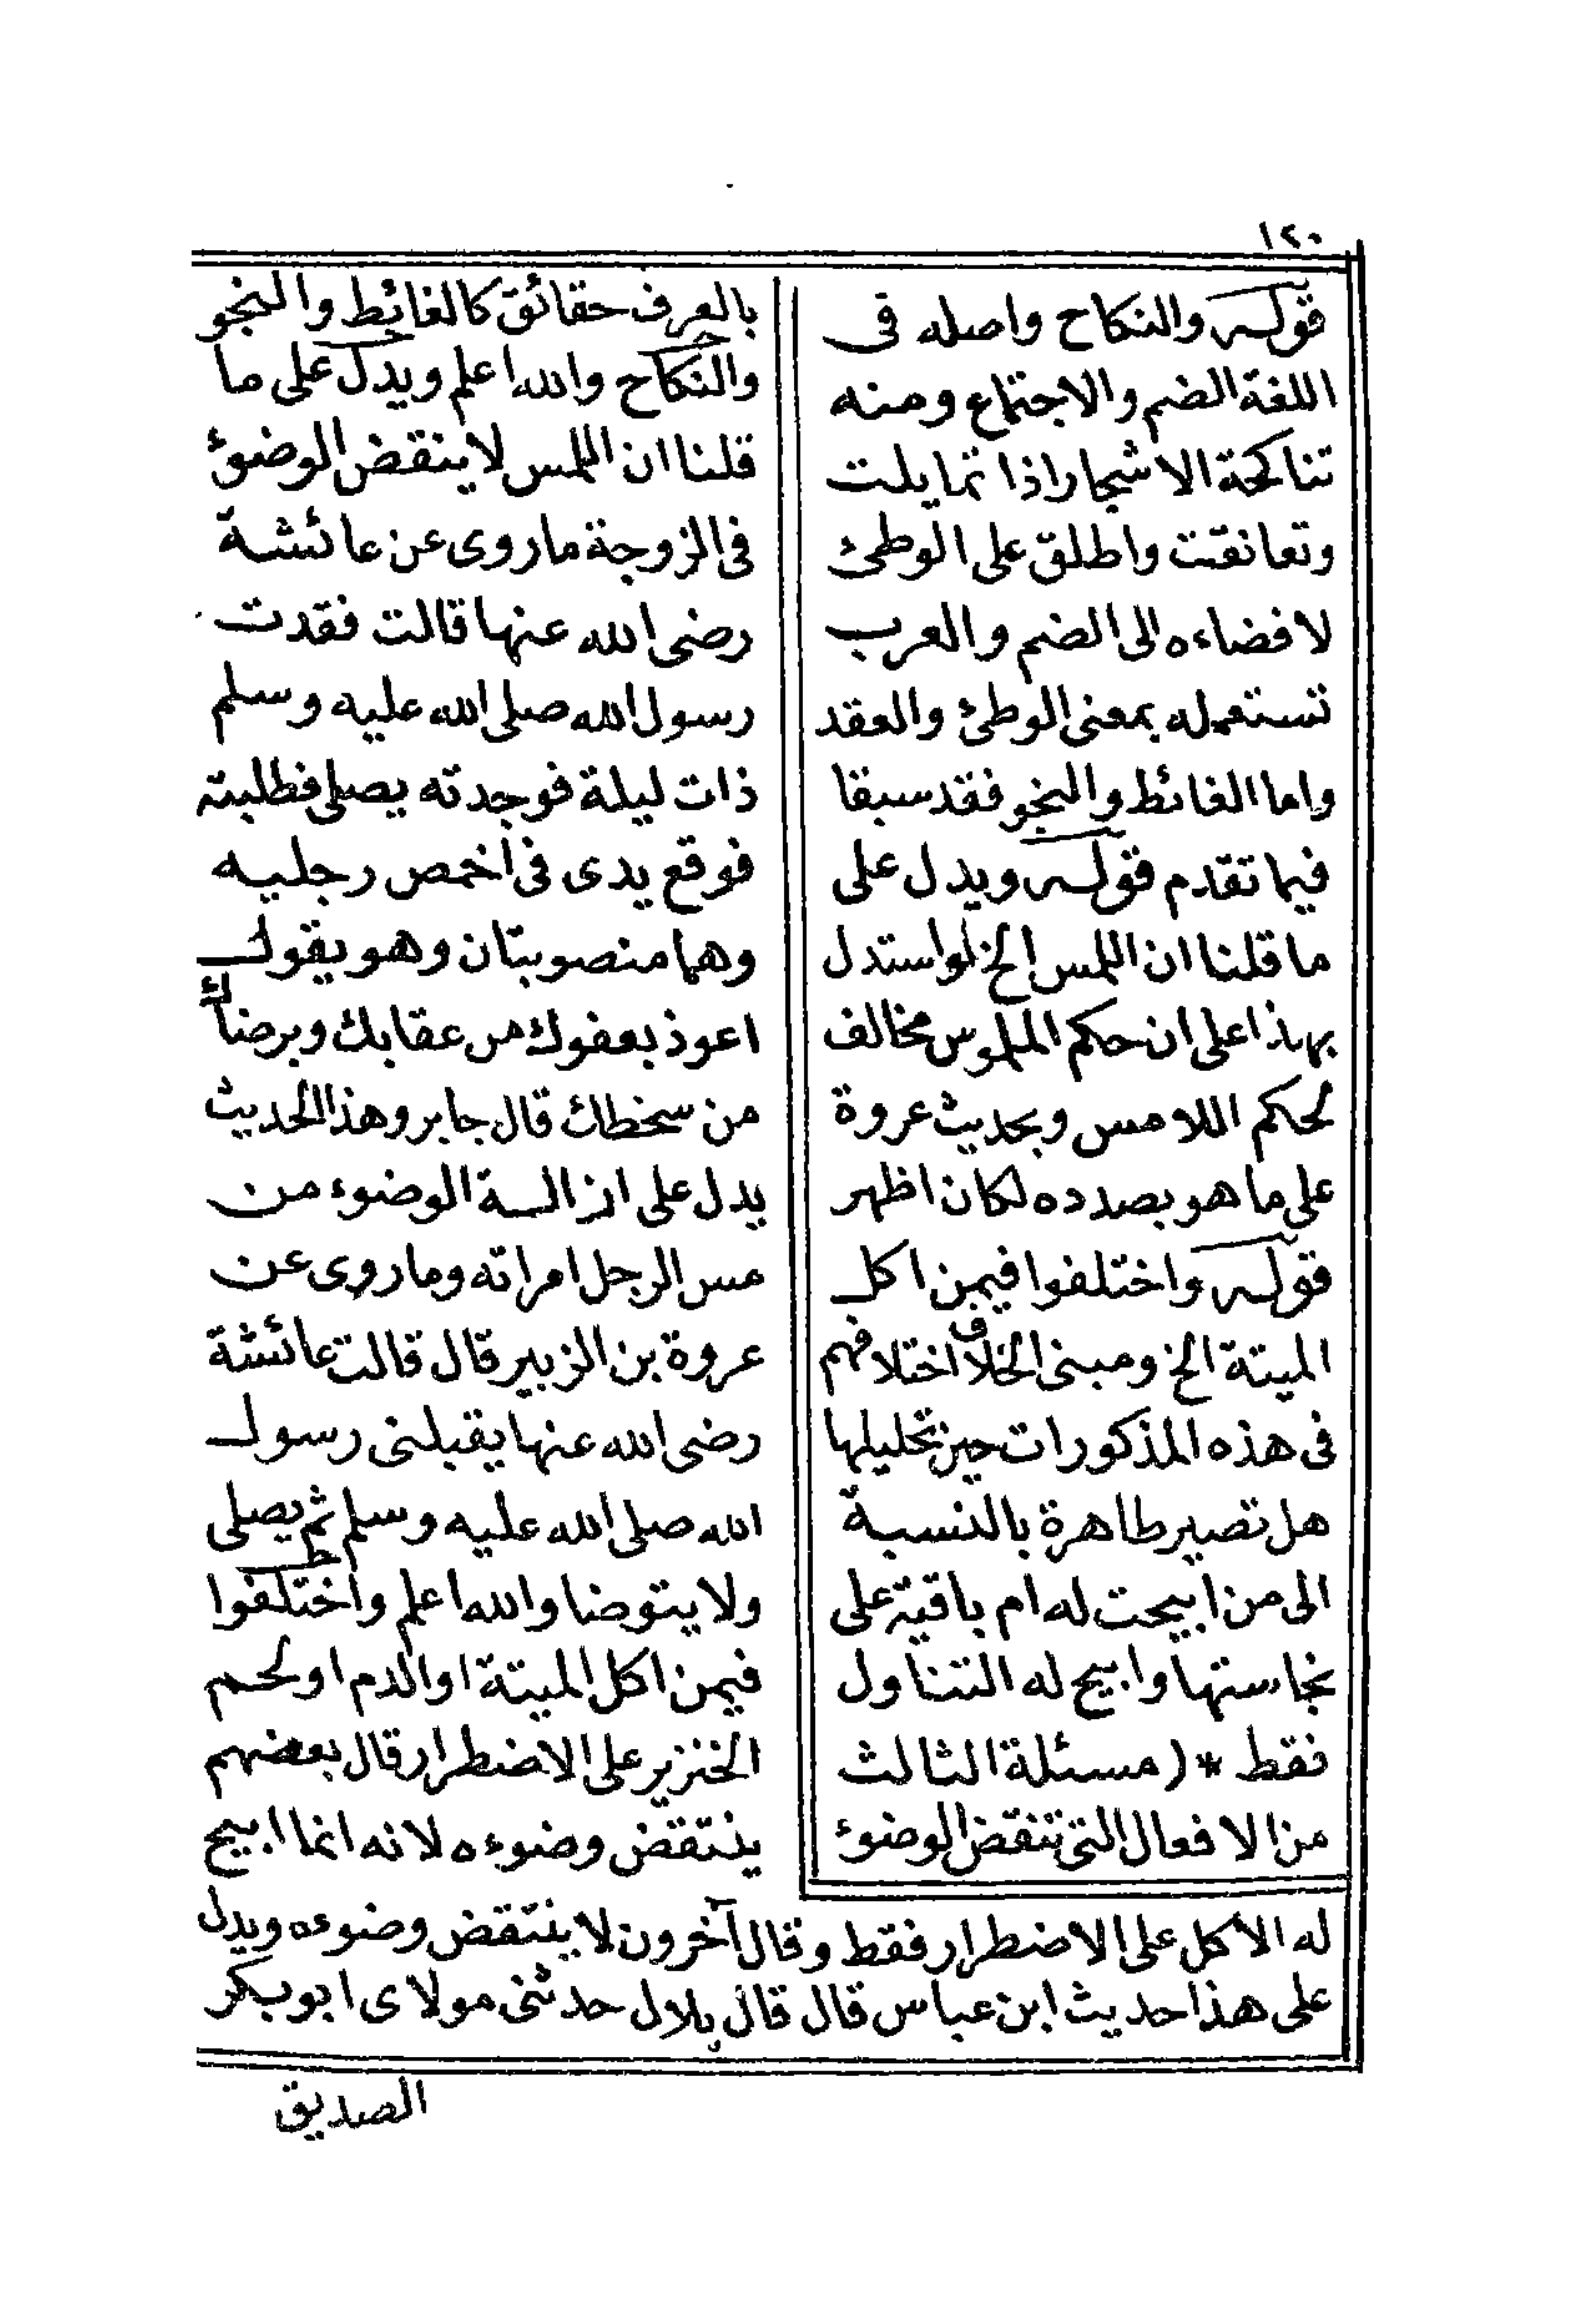 ١٢٠
قوله والنكاح واصله فى
اللغة الضم والاجتماع ومنه
تناكحة الاشجار اذا تمايلت
وتعانقت واطلق على الوطئ
لافضاءه الى الضم والعرب
تستعمله بمعنى الوطئ والعقد
واما الغائط والنجو فقد سبقا
فيما تقدم قوله ويدل على
ما قلنا ان اللمس الخ لو استدل
بهذا على ان حكم الملموس مخالف
لحكم اللامس وبحديث عروة
على ما هو بصدده لكان اظهر
قوله واختلفوا فيمن اكل
الميتة الخ ومبنى الخلاف اختلافهم
فى هذه المذكورات حين تحليلها
هل تصير طاهرة بالنسبة
الى من ابيحت له ام باقية على
نجاستها وابيح له التناول
فقط * (مسئلة الثالث
من الافعال التى تنقض الوضوء
بالعرف حقائق كالغائط والنجو
والنكاح والله اعلم ويدل على ما
قلنا ان اللمس لا ينقض الوضوئ
فى الزوجة ما روى عن عائشة
رضى الله عنها قالت فقدت
رسول الله صلى الله عليه وسلم
ذات ليلة فوجدته يصلى فطلبته
فوقع يدى فى اخمص رجليه
وهما منصوبتان وهو يقول
اعوذ بعفوك من عقابك وبرضاك
من سخطك قال جابر وهذا الحديث
يدل على ازالة الوضوء من
مس الرجل امراته وما روى عن
عروة بن الزبير قال قالت عائشة
رضى الله عنها يقبلنى رسول
الله صلى الله عليه وسلم ثم يصلى
ولا يتوضا والله اعلم واختلفوا
فيمن اكل الميتة او الدم او لحم
الخنزير على الاضطرار قال بعضهم
ينتقض وضوءه لانه انما ابيح
له الاكل على الاضطرار فقط وقال آخرون لا ينتقض وضوءه ويدل
على هذا حديث ابن عباس قال قال بلال حدثنى مولاى ابو بكر
الصديق